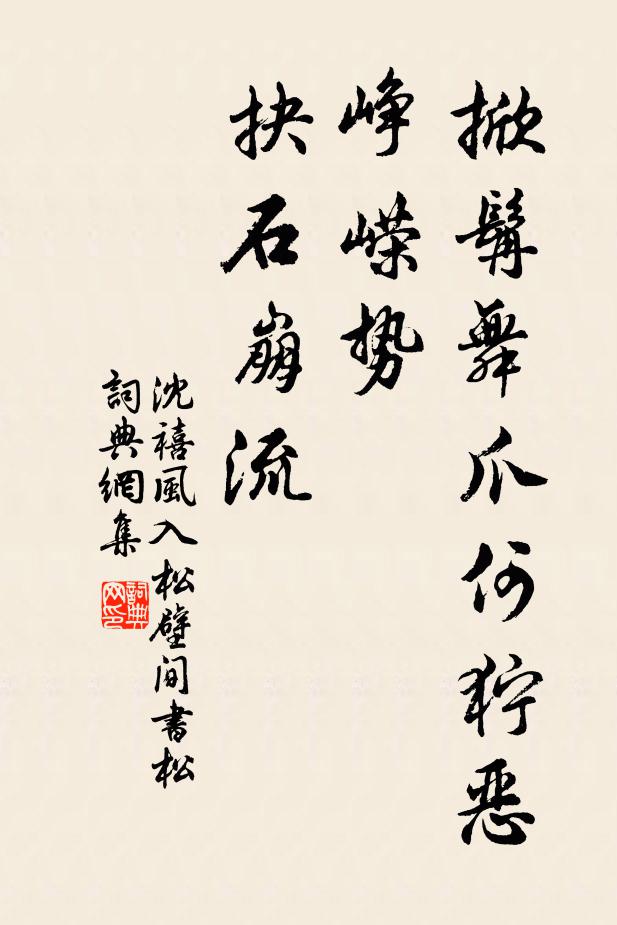 掀髯舞爪何狞恶
峥嵘势
抉石崩流
沈禧風入松壁间書松
詞典網集
詞典网印